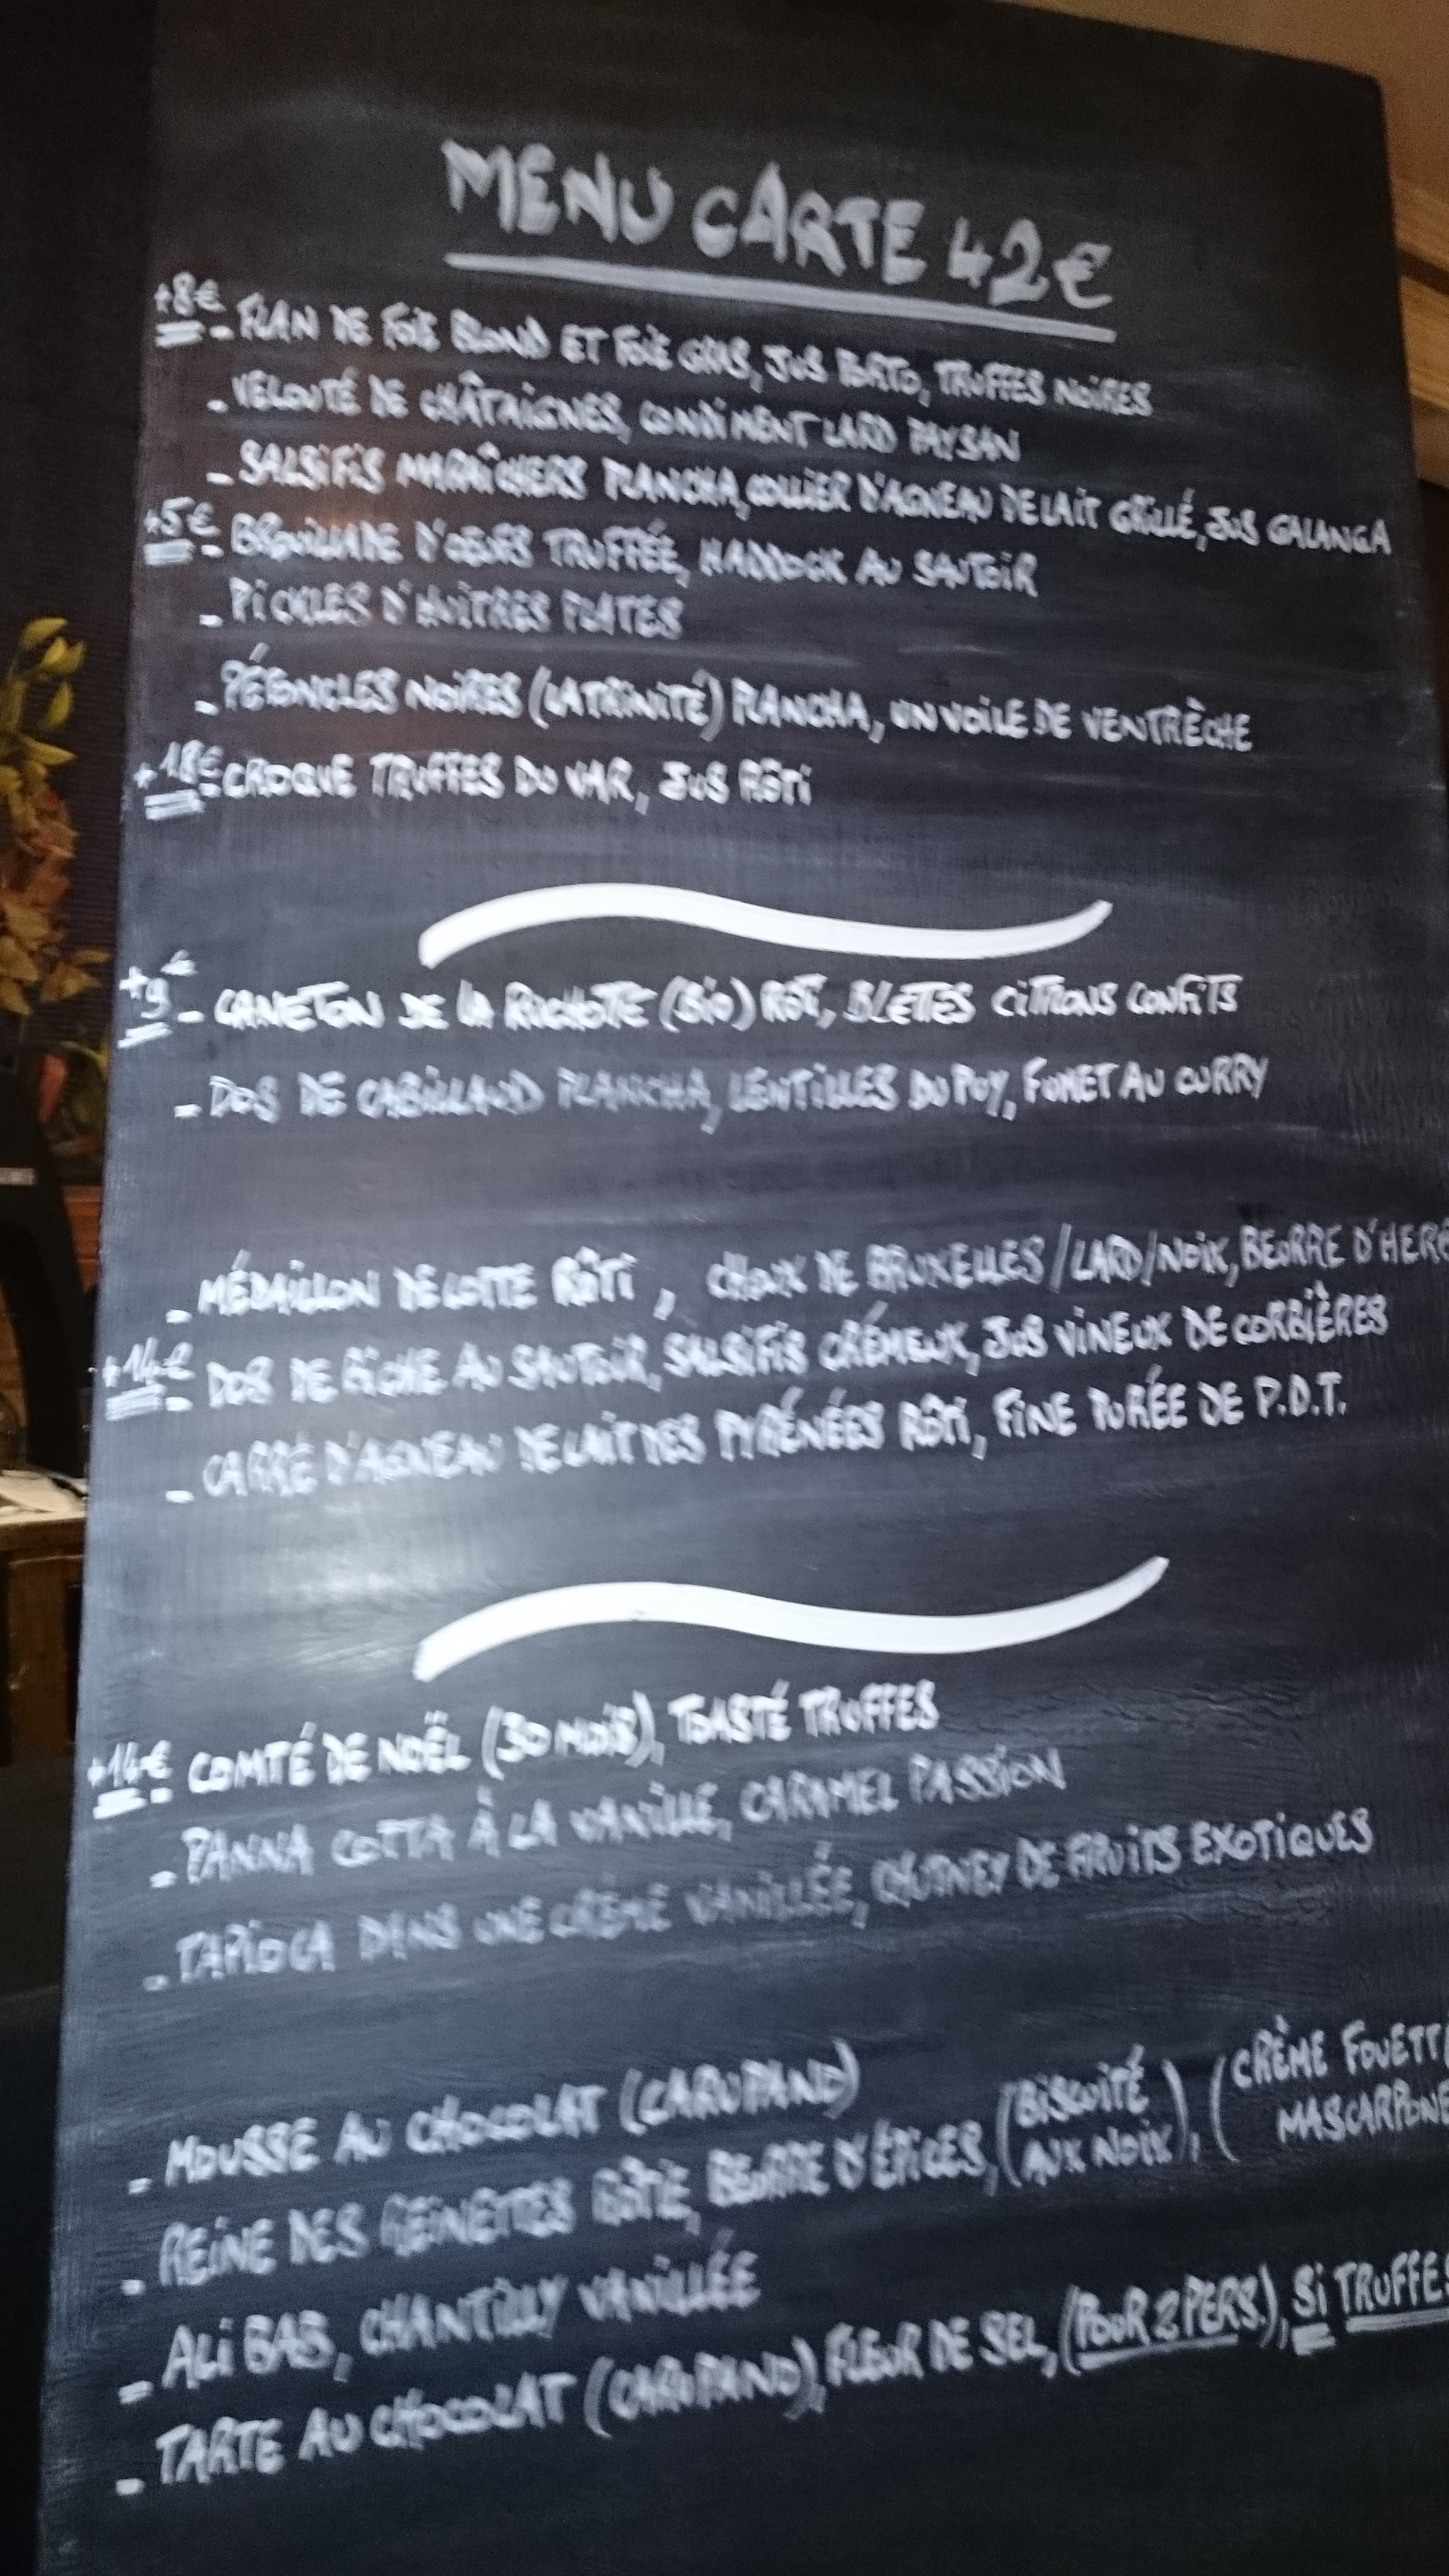 MENU CARTE 42€
+8€ - FLAN DE FOIE BLOND ET FOIE GRAS, JUS PORTO, TRUFFES NOIRES
- VELOUTÉ DE CHÂTAIGNES, CONDIMENT LARD PAYSAN
- SALSIFIS MARAÎCHERS PLANCHA, COLLIER D'AGNEAU DE LAIT GRILLÉ, JUS GALANGA
+5€ - BROUILLADE D'OEUFS TRUFFÉE, HADDOCK AU SAUTOIR
- PICKLES D'HUITRES PLATES
- PÉTONCLES NOIRES (LA TRINITÉ) PLANCHA, UN VOILE DE VENTRÈCHE
+18€ - CROQUE TRUFFES DU VAR, JUS RÔTI
+9€ - CANETON DE LA RUCHOTTE (BIO) RÔTI, BLETTES CITRONS CONFITS
- DOS DE CABILLAUD PLANCHA, LENTILLES DU PUY, FUMET AU CURRY
- MÉDAILLON DE LOTTE RÔTI, CHOUX DE BRUXELLES/LARD/NOIX, BEURRE D'HERB
+14€ - DOS DE BICHE AU SAUTOIR, SALSIFIS CRÉMEUX, JUS VINEUX DE CORBIÈRES
- CARRÉ D'AGNEAU DE LAIT DES PYRÉNÉES RÔTI, FINE PURÉE DE P.D.T.
+14€ - COMTÉ DE NOËL (30 MOIS), TOASTÉ TRUFFES
- PANNA COTTA À LA VANILLE, CARAMEL PASSION
- TAPIOCA DANS UNE CRÈME VANILLÉE, CHUTNEY DE FRUITS EXOTIQUES
- MOUSSE AU CHOCOLAT (CARUPANO)
- REINE DES REINETTES RÔTIE, BEURRE D'ÉPICES, (BISCUITÉ AUX NOIX), (CRÈME FOUETTÉ MASCARPONE
- ALI BAB, CHANTILLY VANILLÉE
- TARTE AU CHOCOLAT (CARUPANO), FLEUR DE SEL, (POUR 2 PERS.), SI TRUFFES